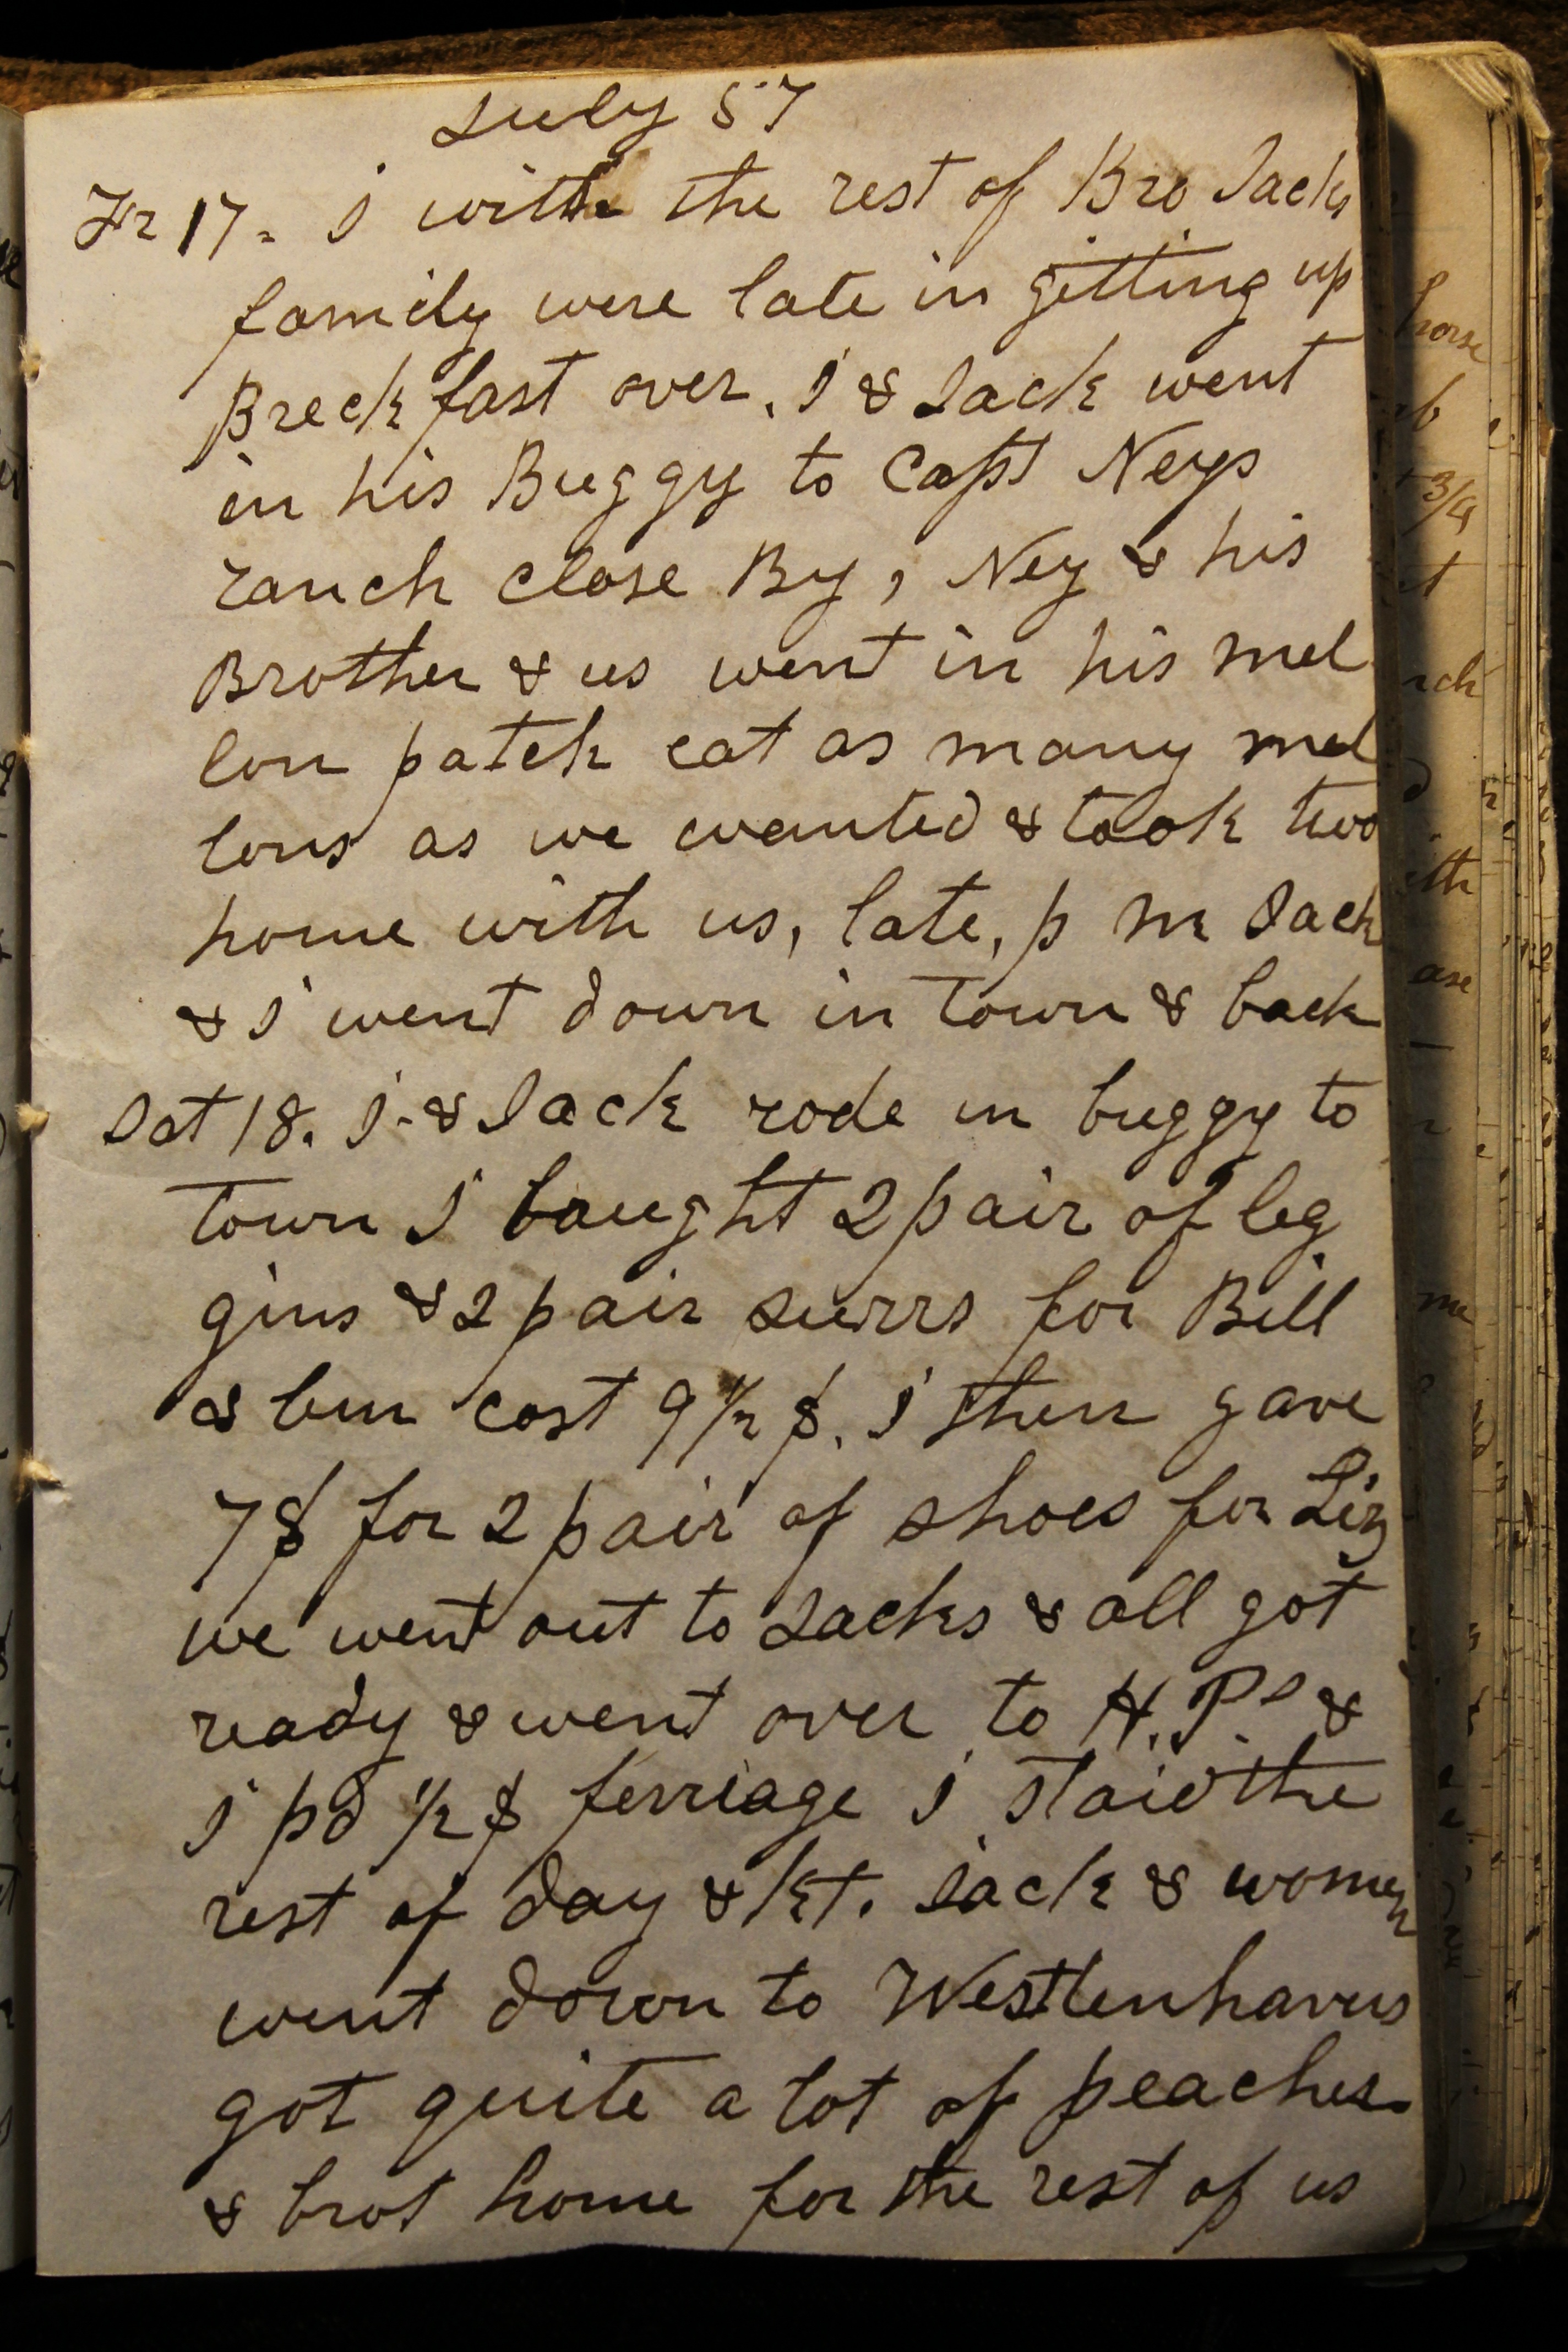 July 57
Fr 17. I with the rest of Bro Jacks
family were late in gitting up
Breckfast over. I & Jack went
in his Buggy to Capt Neys
ranch close By, Ney & his
Brother & us went in his mel
lon patch eat as many mel
lons as we wanted & took two
home with us, late, p m Jack
& I went down in town & back
Sat 18. I & Jack rode in buggy to
town I baught 2 pair of leg
gins & 2 pair surrs for Bill
& bun cost 9 1/2 $. I then gave
7$ for 2 pair of shoes for Liz
we went out to Jacks & all got
ready & went over to H.P.s &
I pd 1/2 $ ferriage I staid the
rest of day & kt. Jack & women
went down to Westlenhavus
got quite a lot of peaches
& brot home for the rest of us
horse
3/4